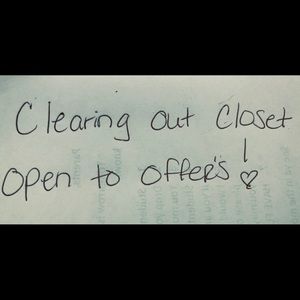 Clearing out Closet
Open to offer's!♡